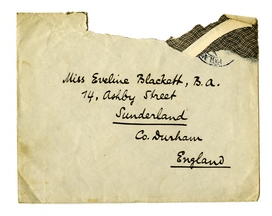 Miss Eveline Blackett, B.A.
74, Ashby Street
Sunderland
Co. Durham
England